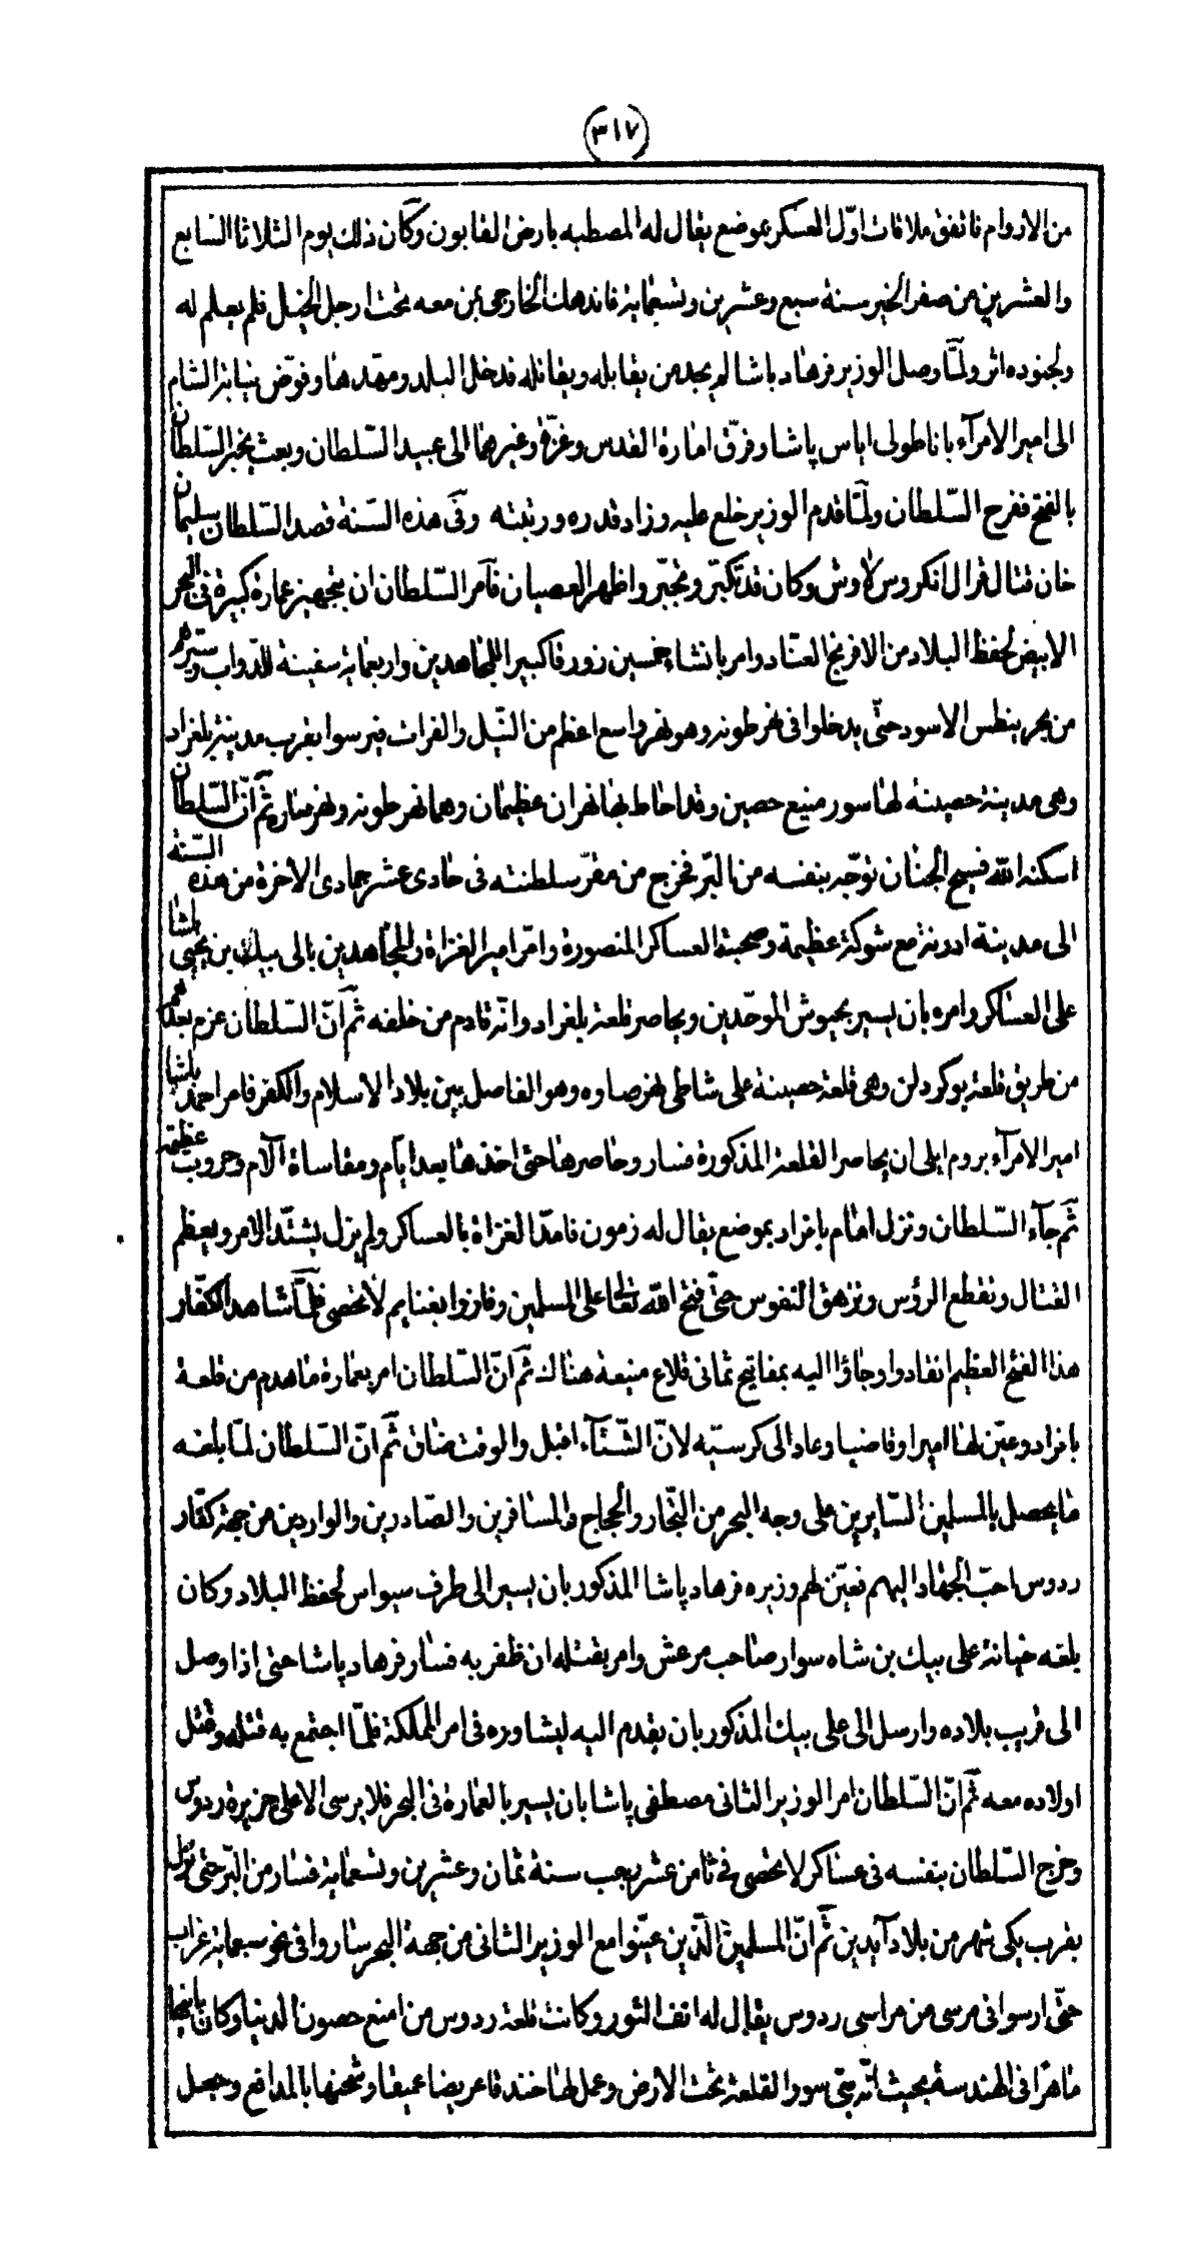 ٣١٧
من الاروام فاتفق ملاقات اوّل العسكر بموضع يقال له المصطبه بارض القابون وكان ذلك يوم الثلاثا السابع
والعشرين من صفر الخير سنة سبع وعشرين وتسعماية فاندهك الخارجى بمن معه تحت ارجل الخيل فلم يعلم له
ولجنوده اثر ولمّا وصل الوزير فرهاد باشا لم يجد من يقابله ويقاتله فدخل البلد ومهّدها وفوّض نيابة الشام
الى امير الامرآء باناطولى اياس پاشا وفرّق امارة القدس وغزّة وغيرهما الى عبيد السّلطان وبعث بخبر السّلطان
بالفتح ففرح السّلطان ولمّا قدم الوزير خلع عليه وزاد قدره ورتبته وفى هذه السّنة قصد السّلطان سليمان
خان قتال قرال انكروس لاوش وكان قد تكبّر وتجبّر واظهر العصيان فآمر السّلطان ان يتجهيز عمارة كبيرة فى البحر
الابيض لحفظ البلاد من الافرنج العتاد وامر بانشاء خمسين زورقا كبيرا للمجاهدين واربعماية سفينة للدّواب وسترهم
من بحر بنطس الاسود حتّى يدخلوا فى نهر طونه وهو نهر واسع اعظم من النّيل والفرات فيرسوا بقرب مدينة بلغراد
وهى مدينة حصينة لها سور منيع حصين وقد احاط بها نهران عظيمان وهما نهر طونه ونهر ساو ثمّ انّ السّلطان
اسكنه الله فسيح الجنان توجّه بنفسه من البرّ فخرج من مقرّ سلطنته فى حادى عشر جمادى الاخرة من هذه السّنة
الى مدينة ادرنة مع شوكة عظيمة وصحبة العساكر المنصورة وامّر امير الغزاة والمجاهدين بالى بيك بن يحيى پاشا
على العساكر وامره بان يسير بجيوش الموحّدين ويحاصر قلعة بلغراد وانّه قادم من خلفه ثمّ انّ السّلطان عزم بعدهم
من طريق قلعة بوكردلن وهى قلعة حصينة على شاطى نهر صاوه وهو الفاصل بين بلاد الاسلام والكفر فامر احمد پاشا
امير الامرآء بروم ايلى ان يحاصر القلعة المذكورة فسار وحاصرها حتى اخذها بعد ايّام ومقاساة آلام وحروب عظيمة
ثمّ جآء السّلطان ونزل امام بلغراد بموضع يقال له زمون فامدّ الغزاة بالعساكر ولم يزل يشتدّ الامر ويعظم
القتال وتقطع الرؤس وتزهق النفوس حتّى فتح الله تعالى على المسلمين وفازوا بغنايم لا تحصى فلمّا شاهد الكفّار
هذا الفتح العظيم انقادوا وجاؤا اليه بمفاتيح ثمانى قلاع منيعة هنالك ثمّ انّ السّلطان امر بعمارة ما هدم من قلعة
بلغراد وعيّن لها اميرا وقاضيا وعاد الى كرسيّه لانّ الشّتآء اقبل والوقت ضاق ثمّ انّ السّلطان لمّا بلغه
ما يحصل بالمسلمين السّايرين على وجه البحر من التّجّار والحجاج والمسافرين والصّادرين والواردين من جهة كفّار
ردوس احبّ الجهاد اليهم فعيّن لهم وزيره فرهاد پاشا المذكور بان يسير الى طرف سيواس لحفظ البلاد وكان
بلغه خيانة على بيك بن شاه سوار صاحب مرعش وامر بقتله ان ظفر به فسار فرهاد پاشا حتى اذا وصل
الى قريب بلاده وارسل الى على بيك المذكور بان يقدم اليه ليشاوره فى امر المملكة فلمّا اجتمع به قتله وقتل
اولاده معه ثمّ انّ السّلطان امر الوزير الثانى مصطفى پاشا بان يسير بالعمارة فى البحر فلا يرسى الا على جزيرة ردوس
وخرج السّلطان بنفسه فى عساكر لا تحصى فى ثامن عشر رجب سنة ثمان وعشرين وتسعماية فسار من البرّ حتى نزل
بقرب يكى شهر من بلاد آيدين ثمّ انّ المسلمين الّذين عيّنوا مع الوزير الثانى من جهة البحر ساروا فى نحو سبعماية غراب
حتّى ارسوا فى مرسى من مراسى ردوس يقال له انف الثور وكانت قلعة ردوس من امنع حصون الدنيا وكان بانيها
ماهرا فى الهندسة بحيث انّه بنى سور القلعة تحت الارض وعمل لها خندقا عريضا عميقا وشحنها بالمدافع وجعل